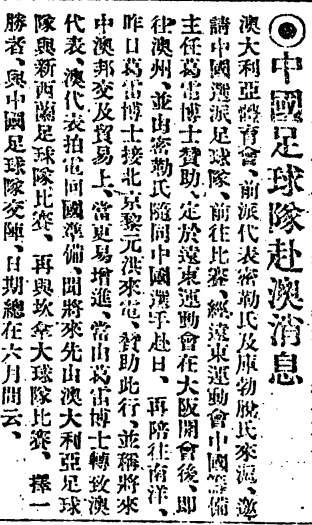 ◉中國足球隊赴澳消息
澳大利亞體育會、前派代表密勒氏及庫勃脫氏來滬、邀
請中國選派足球隊、前往比賽、經遠東運動會中國籌備
主任葛雷博士贊助、定於遠東運動會在大阪開會後、即
往澳州、並由密勒氏隨同中國選手赴日、再陪往南洋、
昨日葛雷博士接北京黎元洪來電、贊助此行、並稱將來
中澳邦交及貿易上、當更易增進、當由葛雷博士轉致澳
代表、澳代表拍電回國準備、聞將來先由澳大利亞足球
隊與新西蘭足球隊比賽、再與坎拿大球隊比賽、擇一
勝者、與中國足球隊交陣、日期總在六月間云、